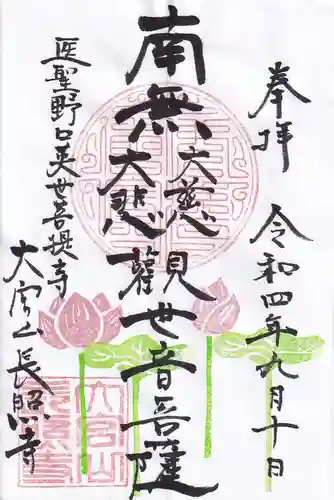 奉拝
令和四年九月十日
南無大慈大悲観世音菩薩
医聖野口英世菩提寺
大宮山長照寺